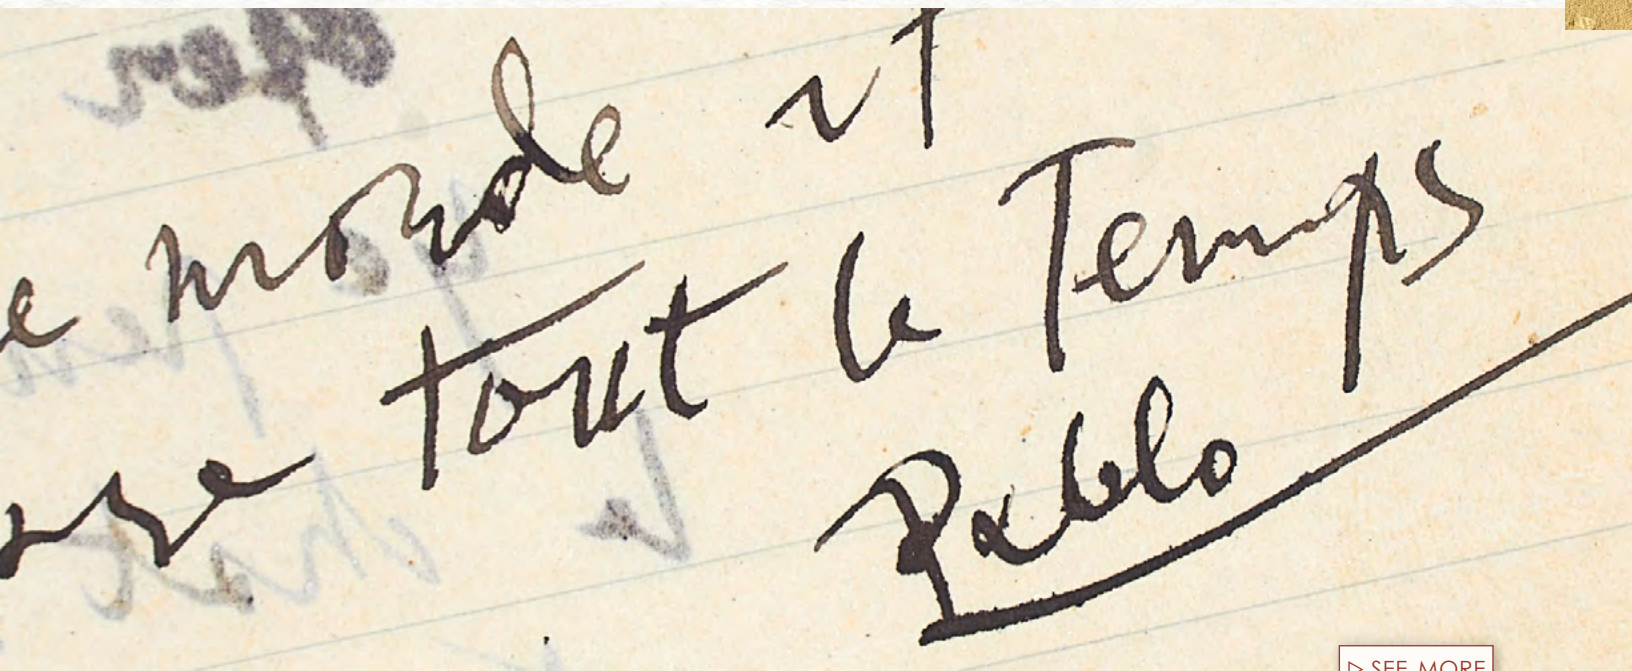 e monde et
tout le Temps
Pablo
▷ SEE MORE